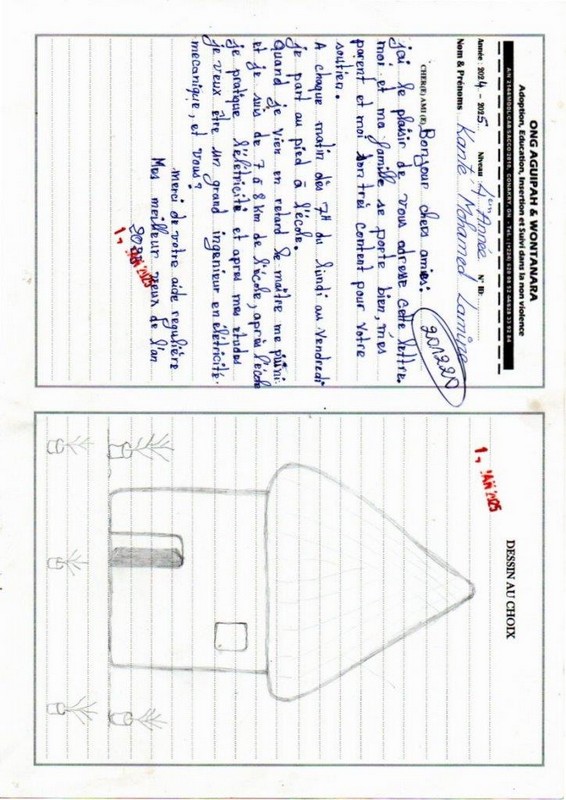 ONG AGUIPAH & WONTANARA
Adoption, Education, Insertion et Suivi dans la non violence
Année : 2024 - 2025 Niveau : 4em Année N° ID:
Nom & Prénoms Kanté Mohamed Lamine
201220
CHER(E) AMI (E) Bonjour chers amies:
j'ai le plaisir de vous adresse cette lettre.
moi et ma famille se porte bien, mes
parent et moi son très content pour votre
soutien.
A chaque matin dès 7H du lundi au vendredi
je part au pied à l'école.
Quand je vien en retard le maître me puni.
et je suis de 7 à 8 km de l'école, après l'école
je pratique l'életricité et apres mes études
je veux être un grand ingenieur en életricité.
mecanique, et vous?
merci de votre aide regulière
Mes meilleur vœux de l'an
1, JAN 2025
DESSIN AU CHOIX
1, JAN 2025